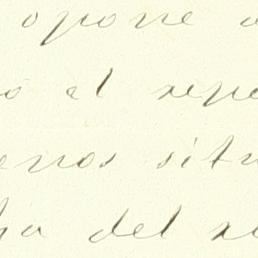 opone
o el repe
enos situ
ha del re